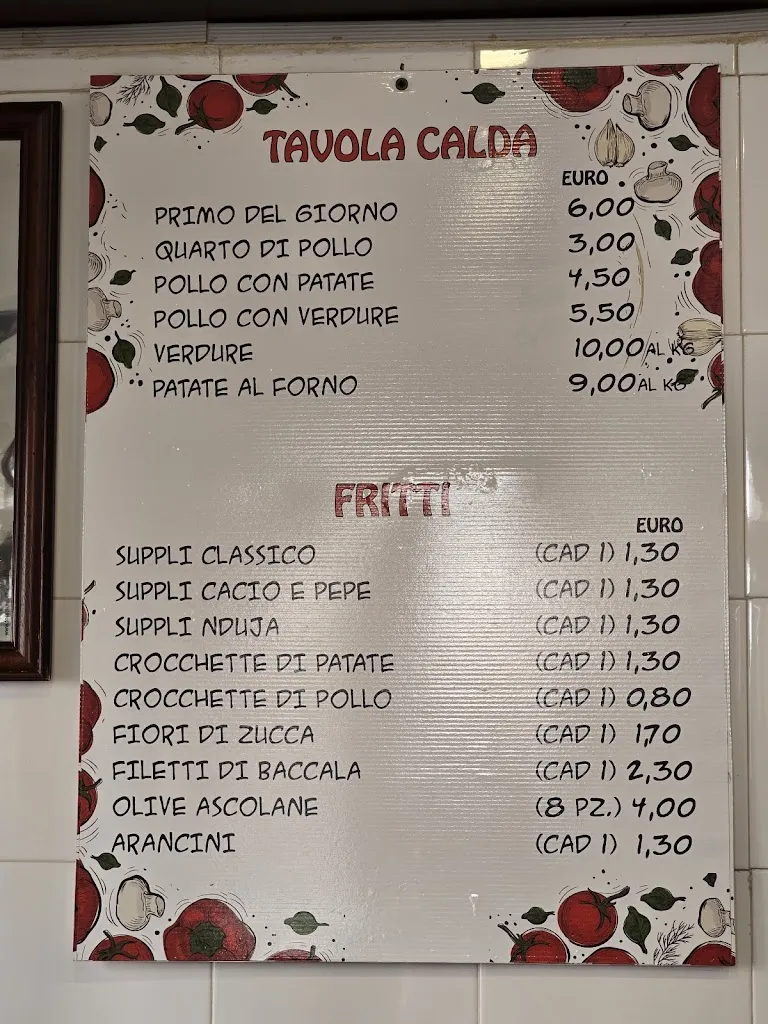 TAVOLA CALDA
EURO
PRIMO DEL GIORNO 6,00
QUARTO DI POLLO 3,00
POLLO CON PATATE 4,50
POLLO CON VERDURE 5,50
VERDURE 10,00 AL KG
PATATE AL FORNO 9,00 AL KG
FRITTI
EURO
SUPPLI CLASSICO (CAD 1) 1,30
SUPPLI CACIO E PEPE (CAD 1) 1,30
SUPPLI NDUJA (CAD 1) 1,30
CROCCHETTE DI PATATE (CAD 1) 1,30
CROCCHETTE DI POLLO (CAD 1) 0,80
FIORI DI ZUCCA (CAD 1) 1,70
FILETTI DI BACCALA (CAD 1) 2,30
OLIVE ASCOLANE (8 PZ.) 4,00
ARANCINI (CAD 1) 1,30